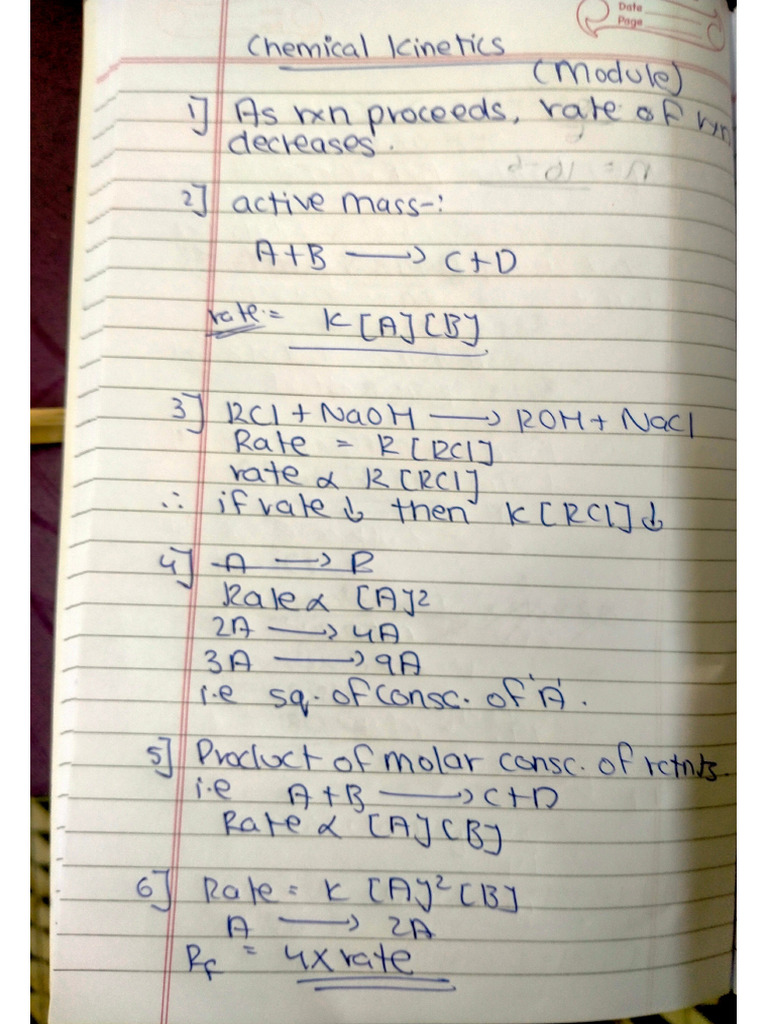 Date
Page
Chemical Kinetics
(Module)
1] As rxn proceeds, rate of rxn
decreases.
2] active mass-:
A+B ⟶ C+D
rate = K[A][B]
3] RCl + NaOH ⟶ ROH + NaCl
Rate = K[RCl]
rate ∝ K[RCl]
∴ if rate ↓ then K[RCl]↓
4] A ⟶ B
Rate ∝ [A]²
2A ⟶ 4A
3A ⟶ 9A
i.e sq. of consc. of 'A'.
5] Product of molar consc. of rctnts.
i.e A+B ⟶ C+D
Rate ∝ [A][B]
6] Rate = K [A]² [B]
A ⟶ 2A
Rf = 4x rate